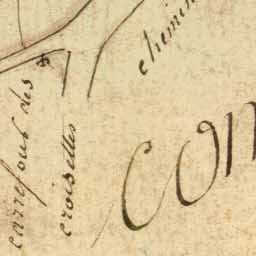 carrefour des
croiselles
chemin
Com